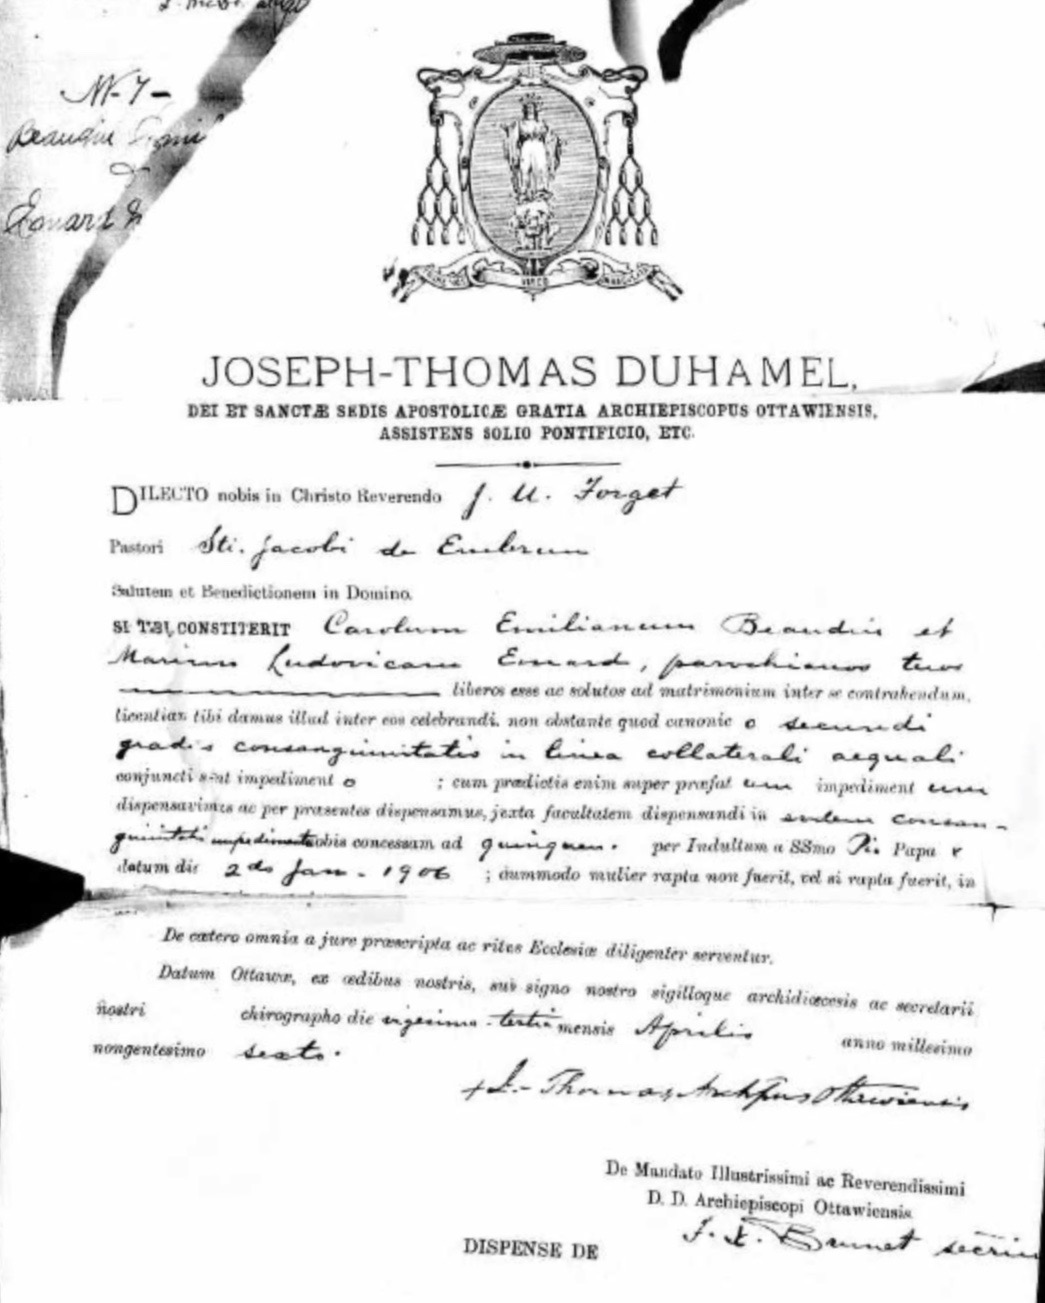 N. 7 -
Beaudin Emil
&
Emard
JOSEPH-THOMAS DUHAMEL,
DEI ET SANCTÆ SEDIS APOSTOLICÆ GRATIA ARCHIEPISCOPUS OTTAWIENSIS,
ASSISTENS SOLIO PONTIFICIO, ETC.
DILECTO nobis in Christo Reverendo J. U. Forget
Pastori Sti. Jacobi de Embrun
Salutem et Benedictionem in Domino.
SI TIBI CONSTITERIT Carolum Emilianum Beaudin et
Mariam Ludovicam Emard, parochianos tuos
liberos esse ac solutos ad matrimonium inter se contrahendum,
licentiam tibi damus illud inter eos celebrandi, non obstante quod canonico secundi
gradis consanguinitatis in linea collaterali aequali
conjuncti sint impedimento ; cum prædictis enim super præfatum impedimentum
dispensavimus ac per præsentes dispensamus, juxta facultatem dispensandi in eodem consan-
guinitatis impedimento nobis concessam ad quinquen. per Indultum a SSmo Pi. Papa X
datum die 2do Jan. 1906 ; dummodo mulier rapta non fuerit, vel si rapta fuerit, in
De cætero omnia a jure præscripta ac ritus Ecclesiæ diligenter serventur.
Datum Ottawæ, ex ædibus nostris, sub signo nostro sigilloque archidiœcesis ac secretarii
nostri chirographo die vigesimo-tertia mensis Aprilis anno millesimo
nongentesimo sexto.
+ J. Thomas, Archpus Ottawiensis
De Mandato Illustrissimi ac Reverendissimi
D. D. Archiepiscopi Ottawiensis
F. X. Brunet
DISPENSE DE